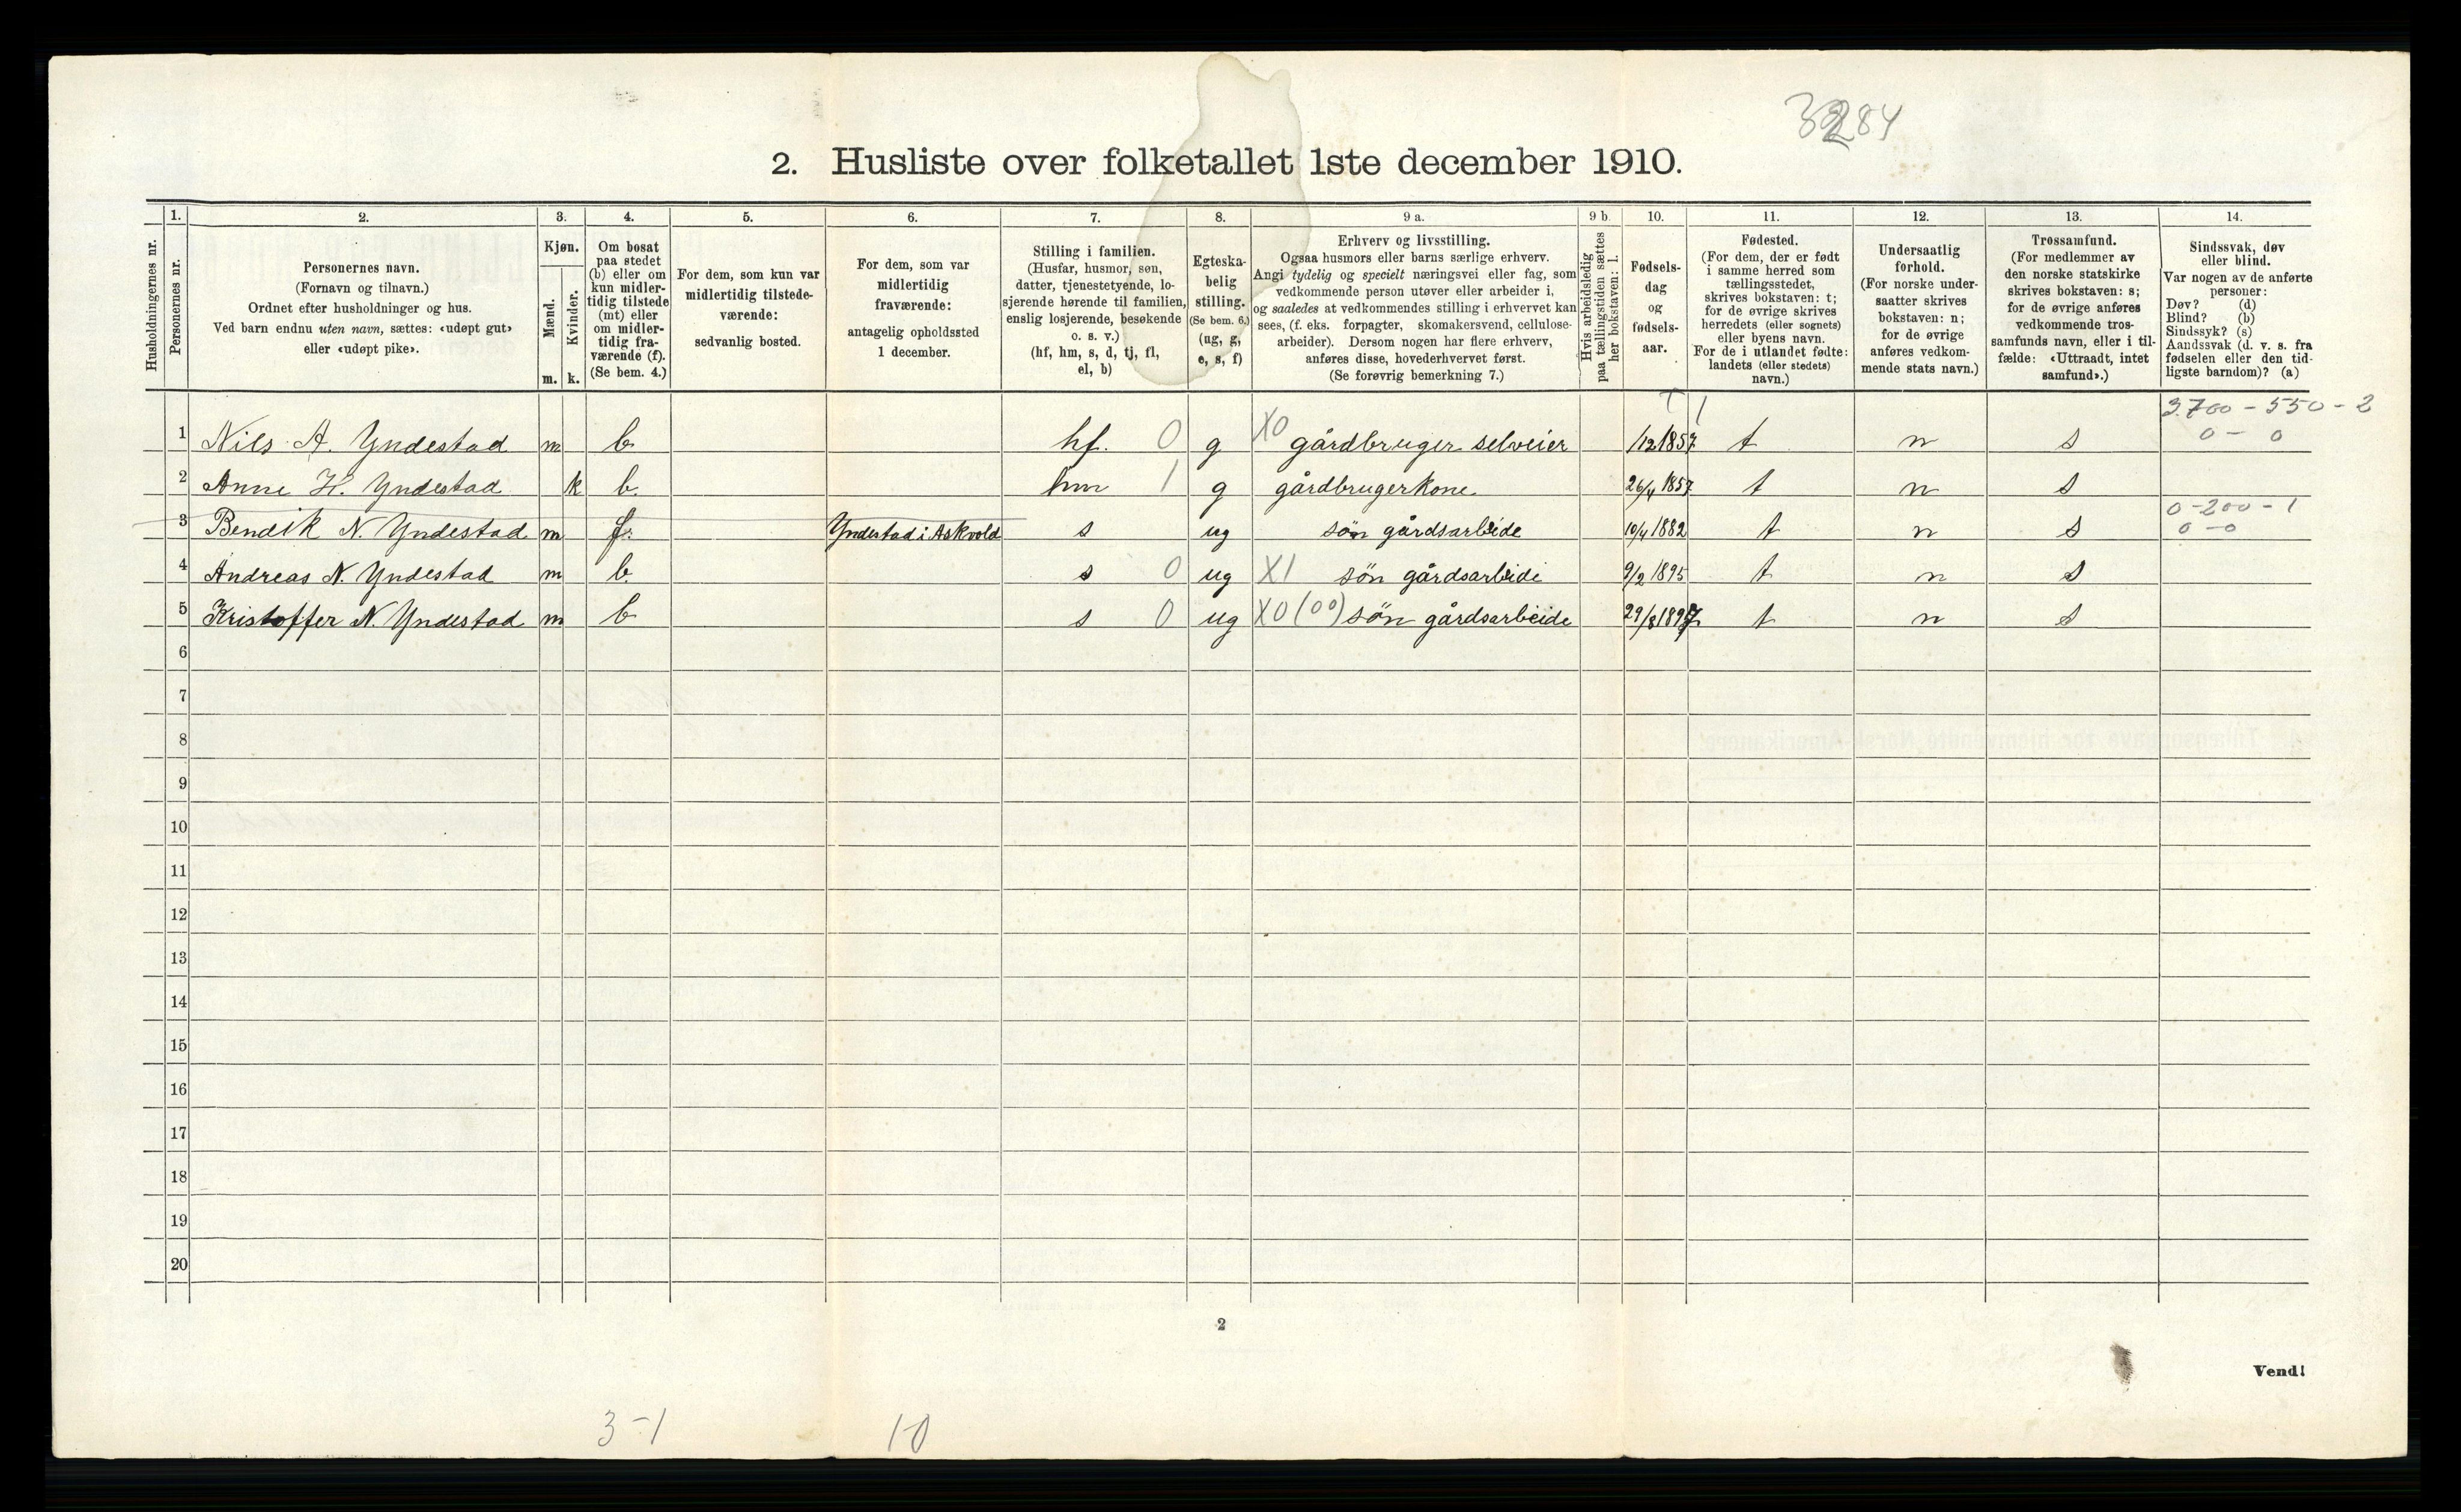 3284
2. Husliste over folketallet 1ste december 1910.
1. 2. 3. 4. 5. 6. 7. 8. 9 a. 9 b. 10. 11. 12. 13. 14.
Husholdningernes nr.
Personernes nr.
Personernes navn.
(Fornavn og tilnavn.)
Ordnet efter husholdninger og hus.
Ved barn endnu uten navn, sættes: «udøpt gut»
eller «udøpt pike».
Kjøn.
Mænd.
Kvinder.
m. k.
Om bosat
paa stedet
(b) eller om
kun midler-
tidig tilstede
(mt) eller
om midler-
tidig fra-
værende (f).
(Se bem. 4.)
For dem, som kun var
midlertidig tilstede-
værende:
sedvanlig bosted.
For dem, som var
midlertidig
fraværende:
antagelig opholdssted
1 december.
Stilling i familien.
(Husfar, husmor, søn,
datter, tjenestetyende, lo-
sjerende hørende til familien,
enslig losjerende, besøkende
o. s. v.)
(hf, hm, s, d, tj, fl,
el, b)
Egteska-
belig
stilling.
(Se bem. 6.)
(ug, g,
e, s, f)
Erhverv og livsstilling.
Ogsaa husmors eller barns særlige erhverv.
Angi tydelig og specielt næringsvei eller fag, som
vedkommende person utøver eller arbeider i,
og saaledes at vedkommendes stilling i erhvervet kan
sees, (f. eks. forpagter, skomakersvend, cellulose-
arbeider). Dersom nogen har flere erhverv,
anføres disse, hovederhvervet først.
(Se forøvrig bemerkning 7.)
Hvis arbeidsledig
paa tællingstiden sættes
her bokstaven: l.
Fødsels-
dag
og
fødsels-
aar.
Fødested.
(For dem, der er født
i samme herred som
tællingsstedet,
skrives bokstaven: t;
for de øvrige skrives
herredets (eller sognets)
eller byens navn.
For de i utlandet fødte:
landets (eller stedets)
navn.)
Undersaatlig
forhold.
(For norske under-
saatter skrives
bokstaven: n;
for de øvrige
anføres vedkom-
mende stats navn.)
Trossamfund.
(For medlemmer av
den norske statskirke
skrives bokstaven: s;
for de øvrige anføres
vedkommende tros-
samfunds navn, eller i til-
fælde: «Uttraadt, intet
samfund».)
Sindssvak, døv
eller blind.
Var nogen av de anførte
personer:
Døv? (d)
Blind? (b)
Sindssyk? (s)
Aandssvak (d. v. s. fra
fødselen eller den tid-
ligste barndom)? (a)
3.700 - 550 - 2
1 Nils A. Yndestad m b hf. 0 g X0 gårdbruger selveier 1/12 1857 t n s 0 - 0
2 Anne H. Yndestad k b. hm 1 g gårdbrugerkone 26/4 1857 t n s
0-200-1
3 Bendik N. Yndestad m f. Yndestad i Askvold s ug søn gårdsarbeide 10/4 1882 t n s 0-0
4 Andreas N. Yndestad m b. s 0 ug X1 søn gårdsarbeide 9/2 1895 t n s
5 Kristoffer N. Yndestad m b s 0 ug X0 (00) søn gårdsarbeide 29/8 1897 t n s
6
7
8
9
10
11
12
13
14
15
16
17
18
19
20
2
Vend!
3-1 10